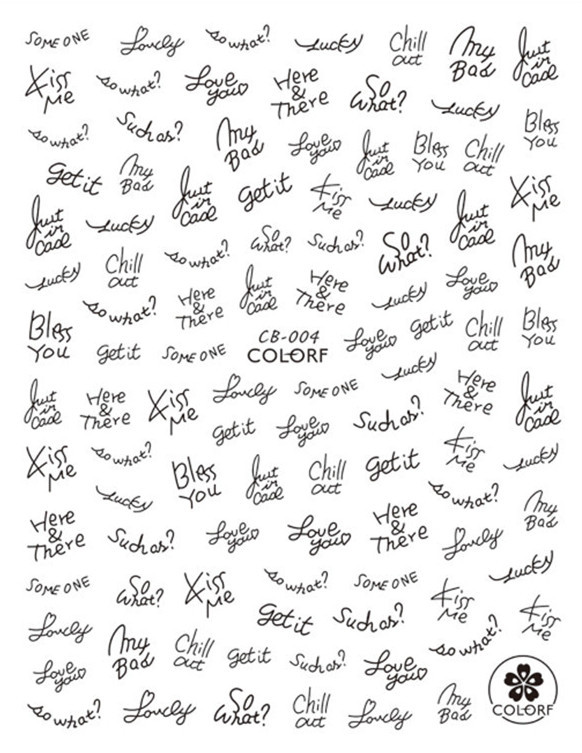 SOME ONE
Lovely
so what?
Lucky
Chill
out
My
Bad
Just
in
Case
Kiss
Me
so what?
Love
you
Here
&
There
So
What?
Lucky
Bless
You
so what?
Such as?
My
Bad
Love
you
Just
in
Case
Bless
You
Chill
out
Get it
My
Bad
Just
in
Case
Get it
Kiss
Me
Lucky
Just
in
Case
Kiss
Me
Just
in
Case
Lucky
So
What?
Such as?
So
What?
My
Bad
Lucky
Chill
out
so what?
Just
in
Case
Here
&
There
Lucky
Love
you
so what?
Here
&
There
Bless
You
Get it
SOME ONE
CB-004
COLORF
Love
you
Get it
Chill
out
Bless
You
Just
in
Case
Here
&
There
Kiss
Me
Lovely
SOME ONE
Lucky
Here
&
There
Just
in
Case
Get it
Love
you
Such as?
Kiss
Me
so what?
Bless
You
Just
in
Case
Chill
out
Get it
Kiss
Me
Lucky
Lucky
so what?
My
Bad
Here
&
There
Such as?
Love
you
Love
you
Here
&
There
Lovely
Lucky
SOME ONE
So
What?
Kiss
Me
so what?
SOME ONE
Kiss
Me
Kiss
Me
Get it
Such as?
so what?
Lovely
My
Bad
Chill
out
Get it
Such as?
Love
you
Love
you
so what?
Lovely
So
What?
Chill
out
Lovely
My
Bad
COLORF